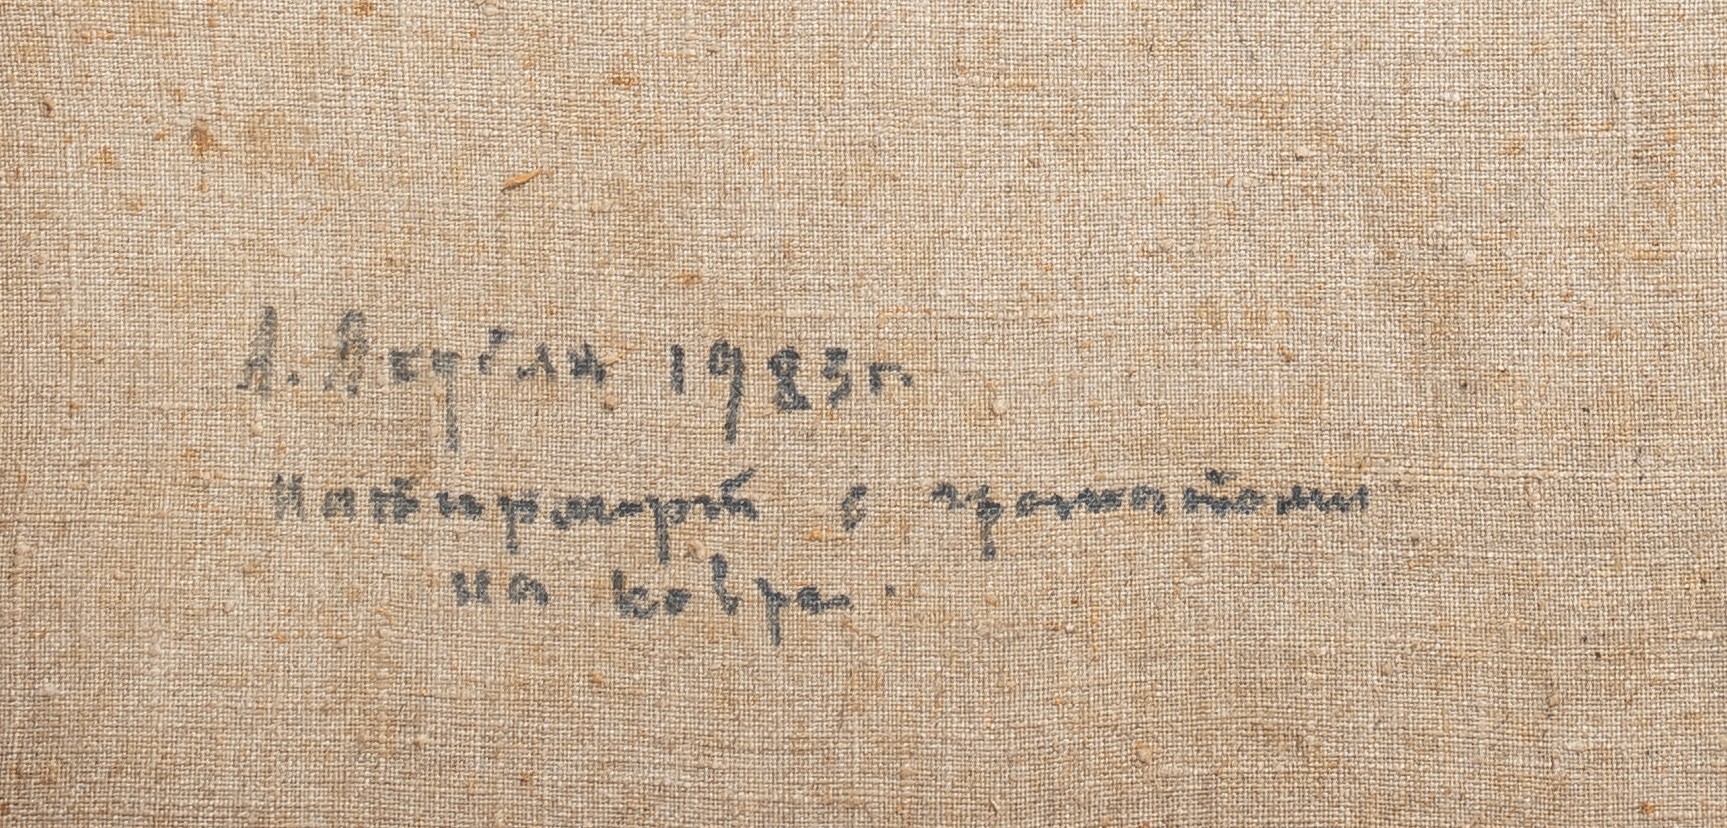 А. Якубли 1983 г.
Натюрморт с гранатами
на ковре.